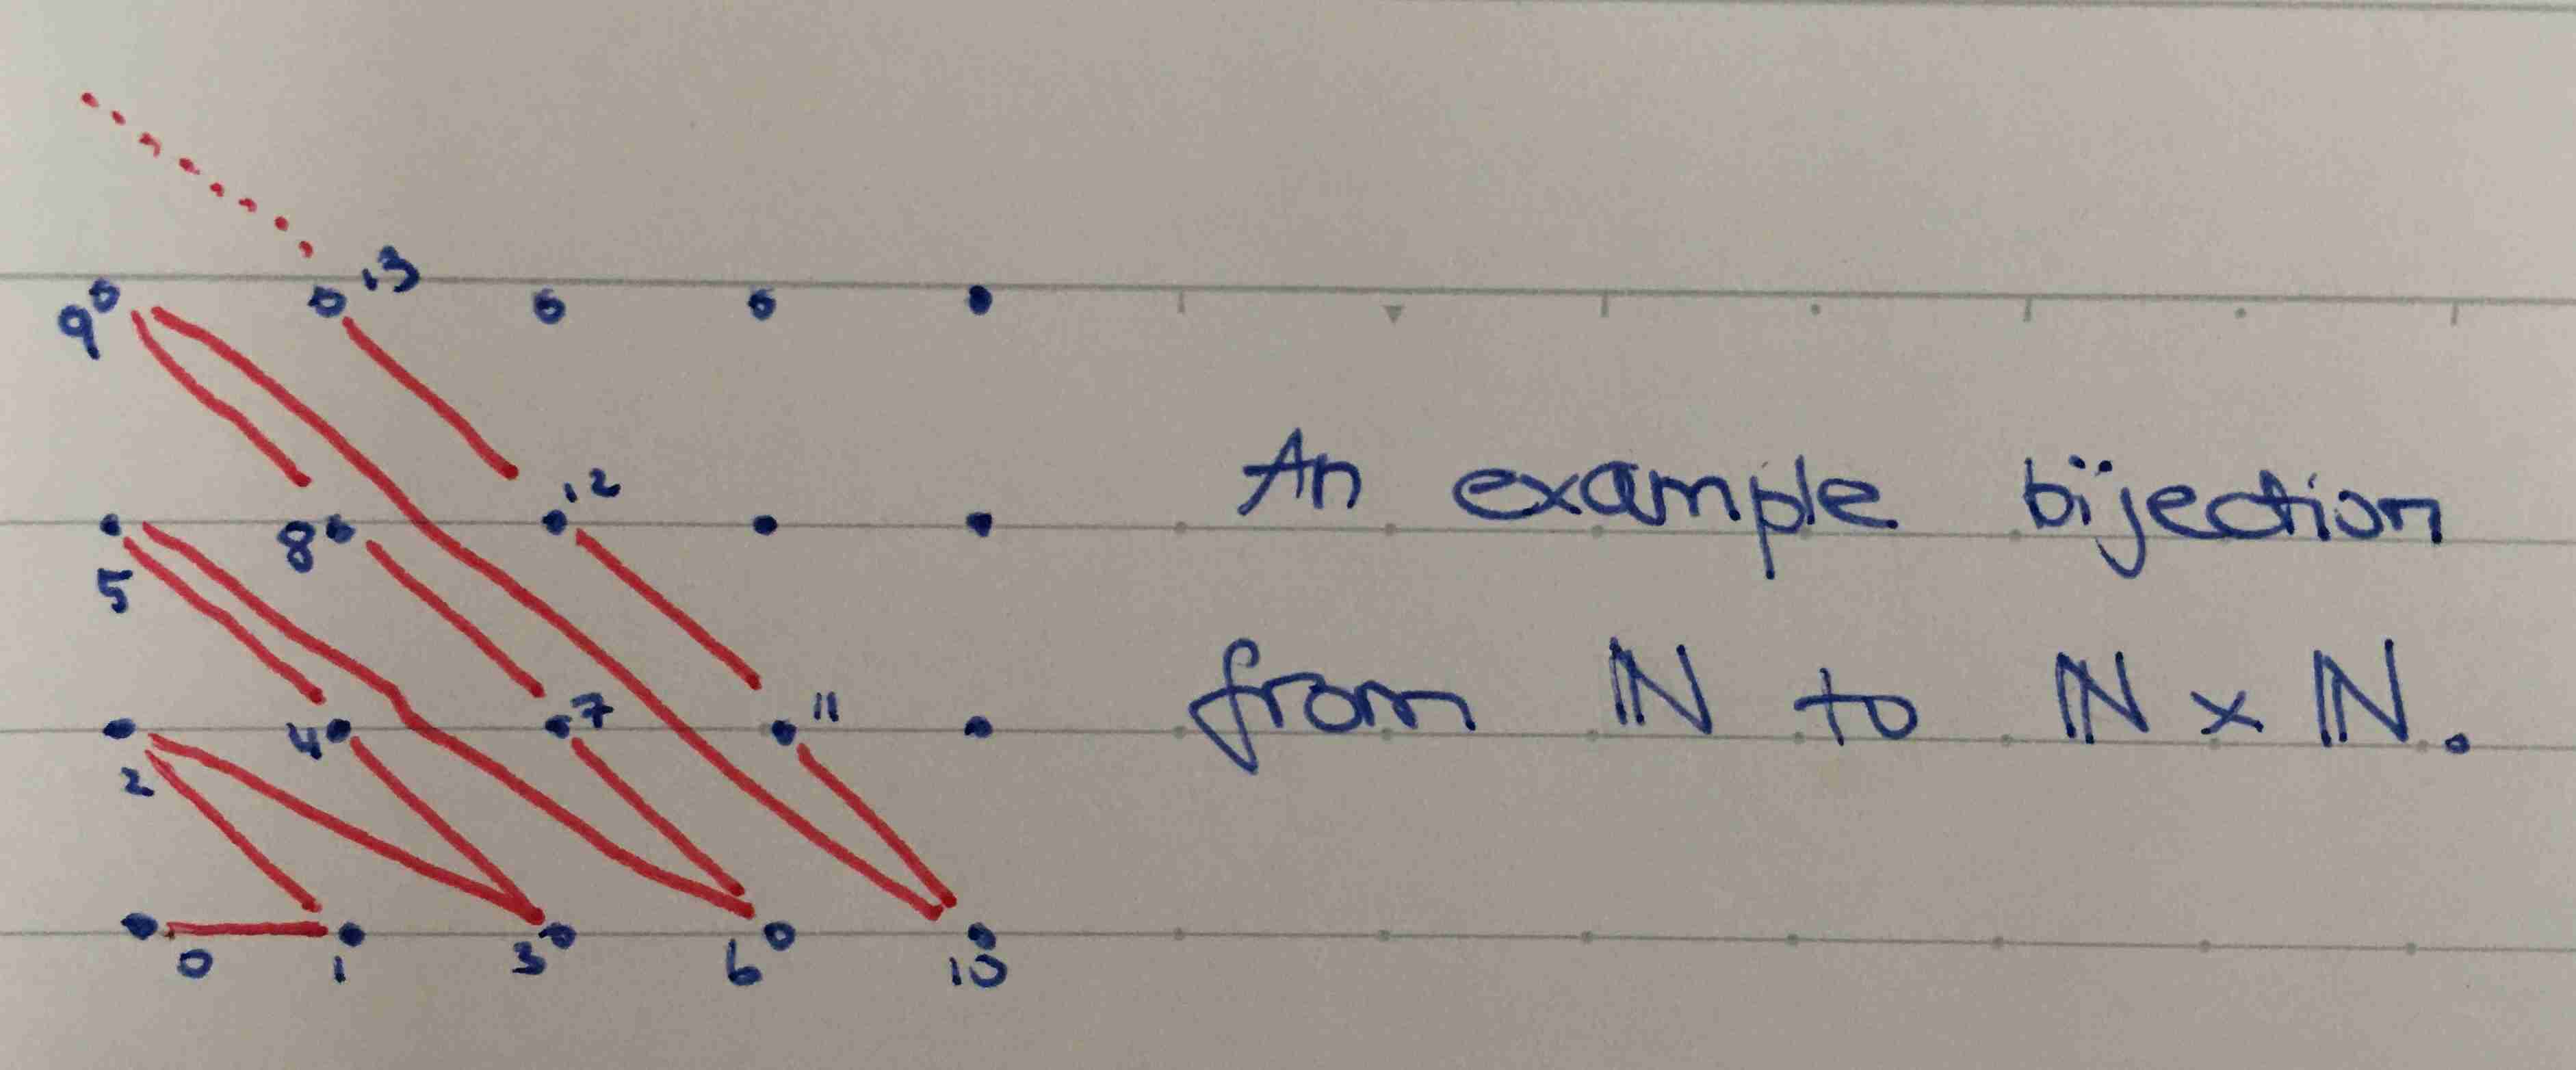 13
9
12
An example bijection
8
5
from ℕ to ℕ × ℕ.
7
11
4
2
0 1 3 6 10